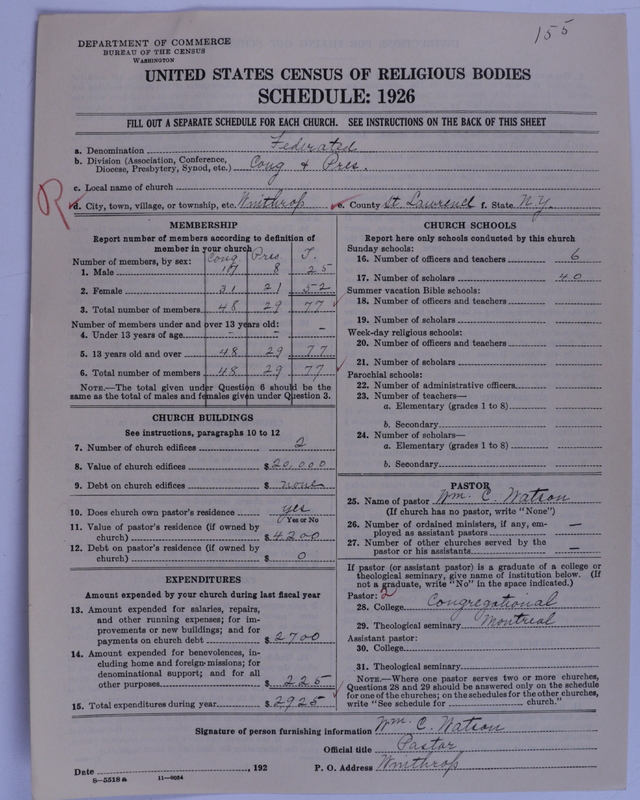 155
DEPARTMENT OF COMMERCE
BUREAU OF THE CENSUS
WASHINGTON
UNITED STATES CENSUS OF RELIGIOUS BODIES
SCHEDULE: 1926
FILL OUT A SEPARATE SCHEDULE FOR EACH CHURCH. SEE INSTRUCTIONS ON THE BACK OF THIS SHEET
a. Denomination Federated
b. Division (Association, Conference, Diocese, Presbytery, Synod, etc.) Cong & Pres.
c. Local name of church
R
d. City, town, village, or township, etc. Winthrop e. County St. Lawrence f. State N.Y.
MEMBERSHIP
Report number of members according to definition of
member in your church
Number of members, by sex: Cong. Pres. T.
1. Male 17 8 25
2. Female 31 21 52
3. Total number of members 48 29 77
Number of members under and over 13 years old:
4. Under 13 years of age - - -
5. 13 years old and over 48 29 77
6. Total number of members 48 29 77
NOTE.—The total given under Question 6 should be the
same as the total of males and females given under Question 3.
CHURCH BUILDINGS
See instructions, paragraphs 10 to 12
7. Number of church edifices 2
8. Value of church edifices $20,000
9. Debt on church edifices $ none
10. Does church own pastor's residence yes
Yes or No
11. Value of pastor's residence (if owned by
church) $4200
12. Debt on pastor's residence (if owned by
church) $ 0
EXPENDITURES
Amount expended by your church during last fiscal year
13. Amount expended for salaries, repairs,
and other running expenses; for im-
provements or new buildings; and for
payments on church debt $2700
14. Amount expended for benevolences, in-
cluding home and foreign missions; for
denominational support; and for all
other purposes $ 225
15. Total expenditures during year $2925
CHURCH SCHOOLS
Report here only schools conducted by this church
Sunday schools:
16. Number of officers and teachers 6
17. Number of scholars 40
Summer vacation Bible schools:
18. Number of officers and teachers
19. Number of scholars
Week-day religious schools:
20. Number of officers and teachers
21. Number of scholars
Parochial schools:
22. Number of administrative officers
23. Number of teachers—
a. Elementary (grades 1 to 8)
b. Secondary
24. Number of scholars—
a. Elementary (grades 1 to 8)
b. Secondary
PASTOR
25. Name of pastor Wm. C. Watson
(If church has no pastor, write "None")
26. Number of ordained ministers, if any, em-
ployed as assistant pastors —
27. Number of other churches served by the
pastor or his assistants —
If pastor (or assistant pastor) is a graduate of a college or
theological seminary, give name of institution below. (If
not a graduate, write "No" in the space indicated.)
Pastor: 2
28. College Congregational
29. Theological seminary Montreal
Assistant pastor:
30. College
31. Theological seminary
NOTE.—Where one pastor serves two or more churches,
Questions 28 and 29 should be answered only on the schedule
for one of the churches; on the schedules for the other churches,
write "See schedule for church."
Signature of person furnishing information Wm. C. Watson
Official title Pastor
Date , 192 P. O. Address Winthrop
8—5518a 11—9034